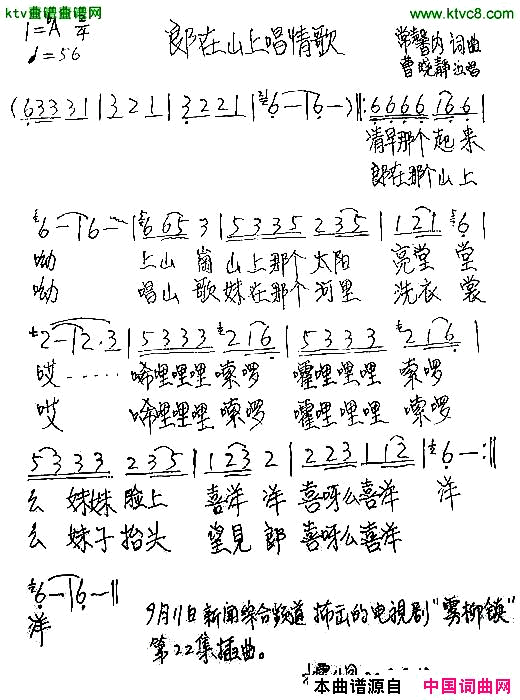 ktv曲谱曲谱网 www.ktvc8.com
1=A 2/4
♩=56
郎在山上唱情歌
常馨内 词曲
曹晓静 演唱
(6 3 3 3 1 | 3 2 1 | 3 2 2 1 | 6 — | 6 — ) ‖: 6 6 6 6 1 6 6 |
清早那个起来
郎在那个山上
6 — | 6 — | 6 6 5 3 | 5 3 3 5 2 3 5 | 1 2 1 6 |
呦 上山 崗 山上那个 太阳 亮堂 堂
呦 唱山 歌 妹在那个 河里 洗衣 裳
2 — | 2 · 3 | 5 3 3 3 2 1 6 | 5 3 3 3 2 1 6 |
哎 …… 唏哩哩哩 嗦啰 嚯哩哩哩 嗦啰
哎 唏哩哩哩 嗦啰 嚯哩哩哩 嗦啰
5 3 3 3 2 3 5 | 1 2 3 2 | 2 2 3 1 1 2 | 6 — :‖
么 妹妹 脸上 喜洋 洋 喜呀么喜洋 洋
么 妹子 抬头 望見 郎 喜呀么喜洋
6 — | 6 — ‖
洋
9月11日新闻综合频道 播出的电視剧"雾柳镇"
第22集插曲。
本曲谱源自 中国词曲网